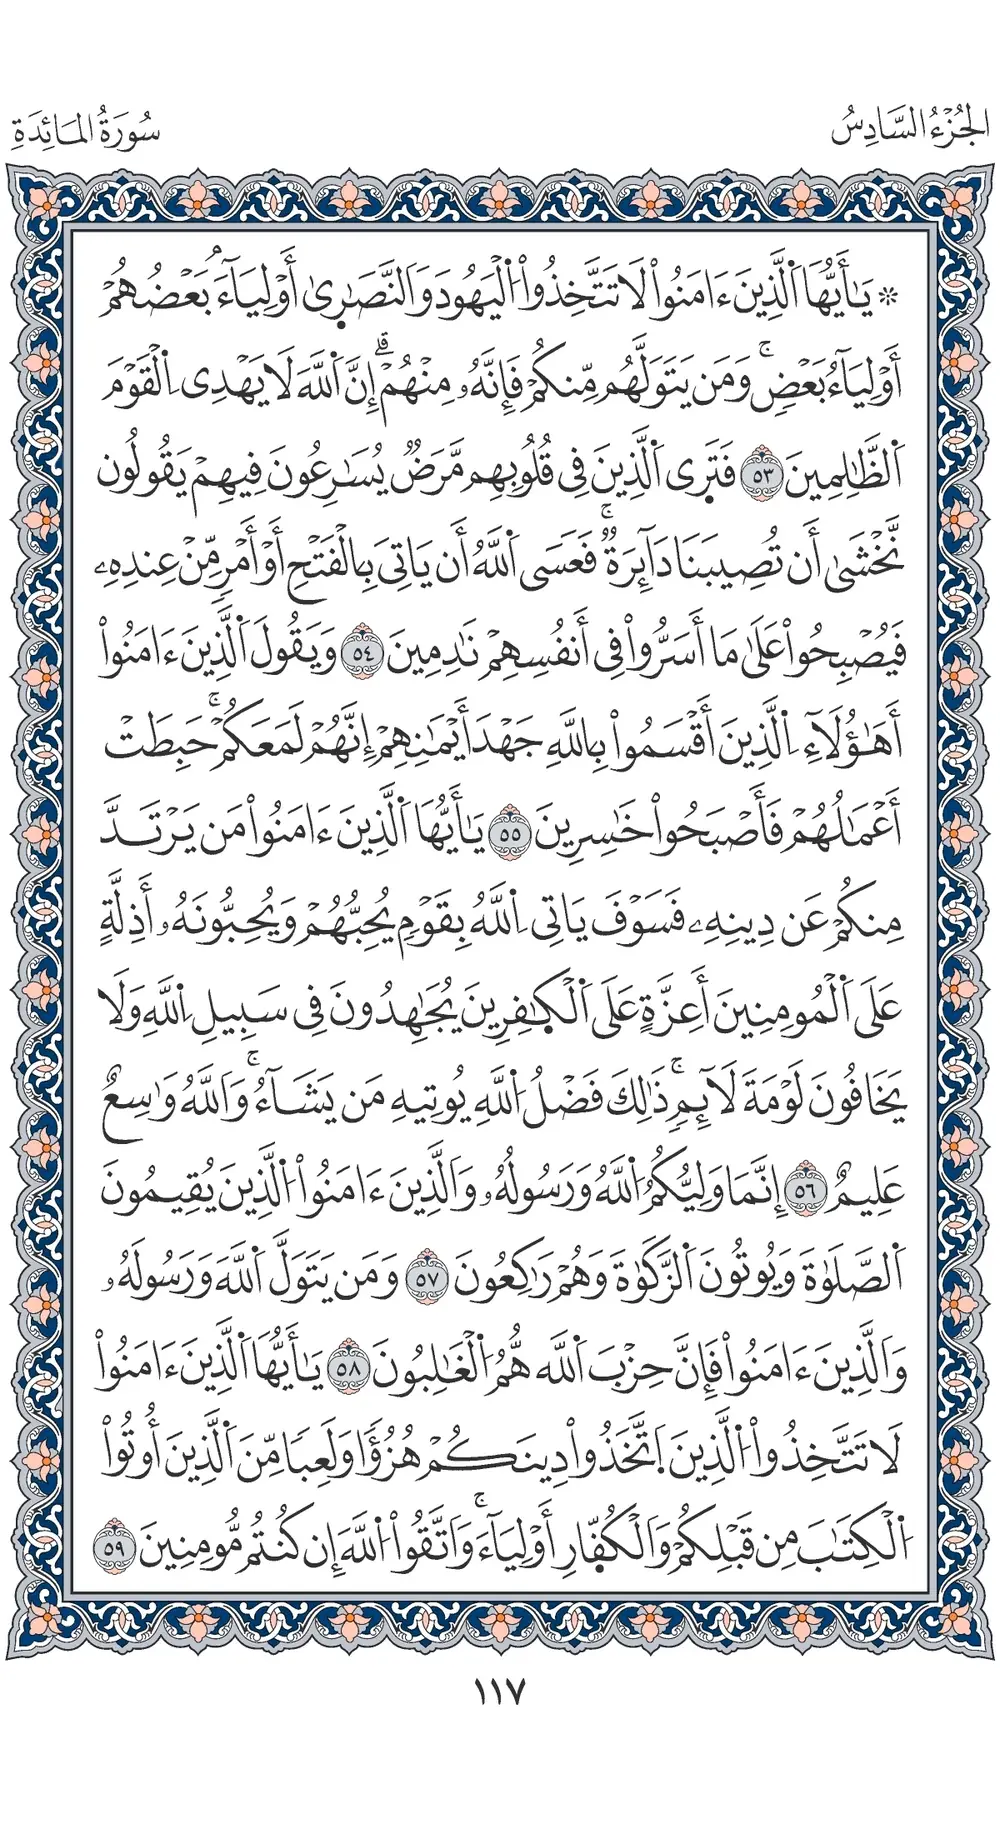 الجُزْءُ السَّادِسُ
سُورَةُ المَائِدَةِ
* يَٰأَيُّهَا اَ۬لَّذِينَ ءَامَنُواْ لَا تَتَّخِذُواْ اُ۬لْيَهُودَ وَالنَّصَٰر۪ىٰ أَوْلِيَآءَۘ بَعْضُهُمْ
أَوْلِيَآءُ بَعْضٖۚ وَمَن يَتَوَلَّهُم مِّنكُمْ فَإِنَّهُۥ مِنْهُمْۗ إِنَّ اَ۬للَّهَ لَا يَهْدِى اِ۬لْقَوْمَ
اَ۬لظَّٰلِمِينَ ٥٣ فَتَر۪ى اَ۬لَّذِينَ فِى قُلُوبِهِم مَّرَضٞ يُسَٰرِعُونَ فِيهِمْ يَقُولُون
نَّخْشَىٰ أَن تُصِيبَنَا دَآئِرَةٞۚ فَعَسَى اَ۬للَّهُ أَن يَاتِىَ بِالْفَتْحِ أَوْ أَمْرٖ مِّنْ عِندِهِۦ
فَيُصْبِحُواْ عَلَىٰ مَا أَسَرُّواْ فِى أَنفُسِهِمْ نَٰدِمِينَ ٥٤ وَيَقُولَ اَ۬لَّذِينَ ءَامَنُواْ
أَهَٰؤُلَآءِ اِ۬لَّذِينَ أَقْسَمُواْ بِاللَّهِ جَهْدَ أَيْمَٰنِهِمْ إِنَّهُمْ لَمَعَكُمْۚ حَبِطَتْ
أَعْمَٰلُهُمْ فَأَصْبَحُواْ خَٰسِرِينَ ٥٥ يَٰأَيُّهَا اَ۬لَّذِينَ ءَامَنُواْ مَن يَرْتَدَّ
مِنكُمْ عَن دِينِهِۦ فَسَوْفَ يَاتِى اِ۬للَّهُ بِقَوْمٖ يُحِبُّهُمْ وَيُحِبُّونَهُۥ أَذِلَّةٍ
عَلَى اَ۬لْمُومِنِينَ أَعِزَّةٍ عَلَى اَ۬لْكٰ۪فِرِينَ يُجَٰهِدُونَ فِى سَبِيلِ اِ۬للَّهِ وَلَا
يَخَافُونَ لَوْمَةَ لَآئِمٖۚ ذَٰلِكَ فَضْلُ اُ۬للَّهِ يُوتِيهِ مَن يَشَآءُۚ وَاللَّهُ وَٰسِعٌ
عَلِيمٌ ٥٦ إِنَّمَا وَلِيُّكُمُ اُ۬للَّهُ وَرَسُولُهُۥ وَالَّذِينَ ءَامَنُواْ اُ۬لَّذِينَ يُقِيمُونَ
اَ۬لصَّلَوٰةَ وَيُوتُونَ اَ۬لزَّكَوٰةَ وَهُمْ رَٰكِعُونَ ٥٧ وَمَن يَتَوَلَّ اَ۬للَّهَ وَرَسُولَهُۥ
وَالَّذِينَ ءَامَنُواْ فَإِنَّ حِزْبَ اَ۬للَّه هُّمُ اُ۬لْغَٰلِبُونَ ٥٨ يَٰأَيُّهَا اَ۬لَّذِينَ ءَامَنُواْ
لَا تَتَّخِذُواْ اُ۬لَّذِينَ اَ۪تَّخَذُواْ دِينَكُمْ هُزُؤٗا وَلَعِبٗا مِّنَ اَ۬لَّذِينَ أُوتُواْ
اُ۬لْكِتَٰبَ مِن قَبْلِكُمْ وَالْكُفّ۪ارِ أَوْلِيَآءَۚ وَاتَّقُواْ اُ۬للَّهَ إِن كُنتُم مُّومِنِينَ ٥٩
١١٧